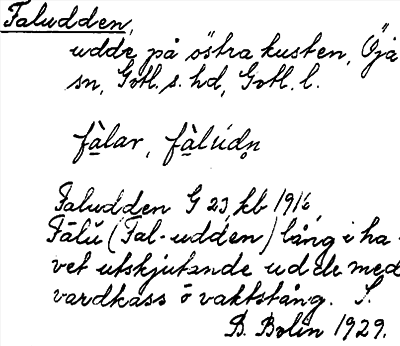 Faludden,
udde på östra kusten, Öja
sn, Gotl. s. hd, Gotl. l.
fàlar, fàlúdn
Faludden G 23 kb 1916
Fālŭ (Fal-udden) lång i ha-
vet utskjutande udde med
vardkass o vaktstång. S.
B. Bolin 1929.